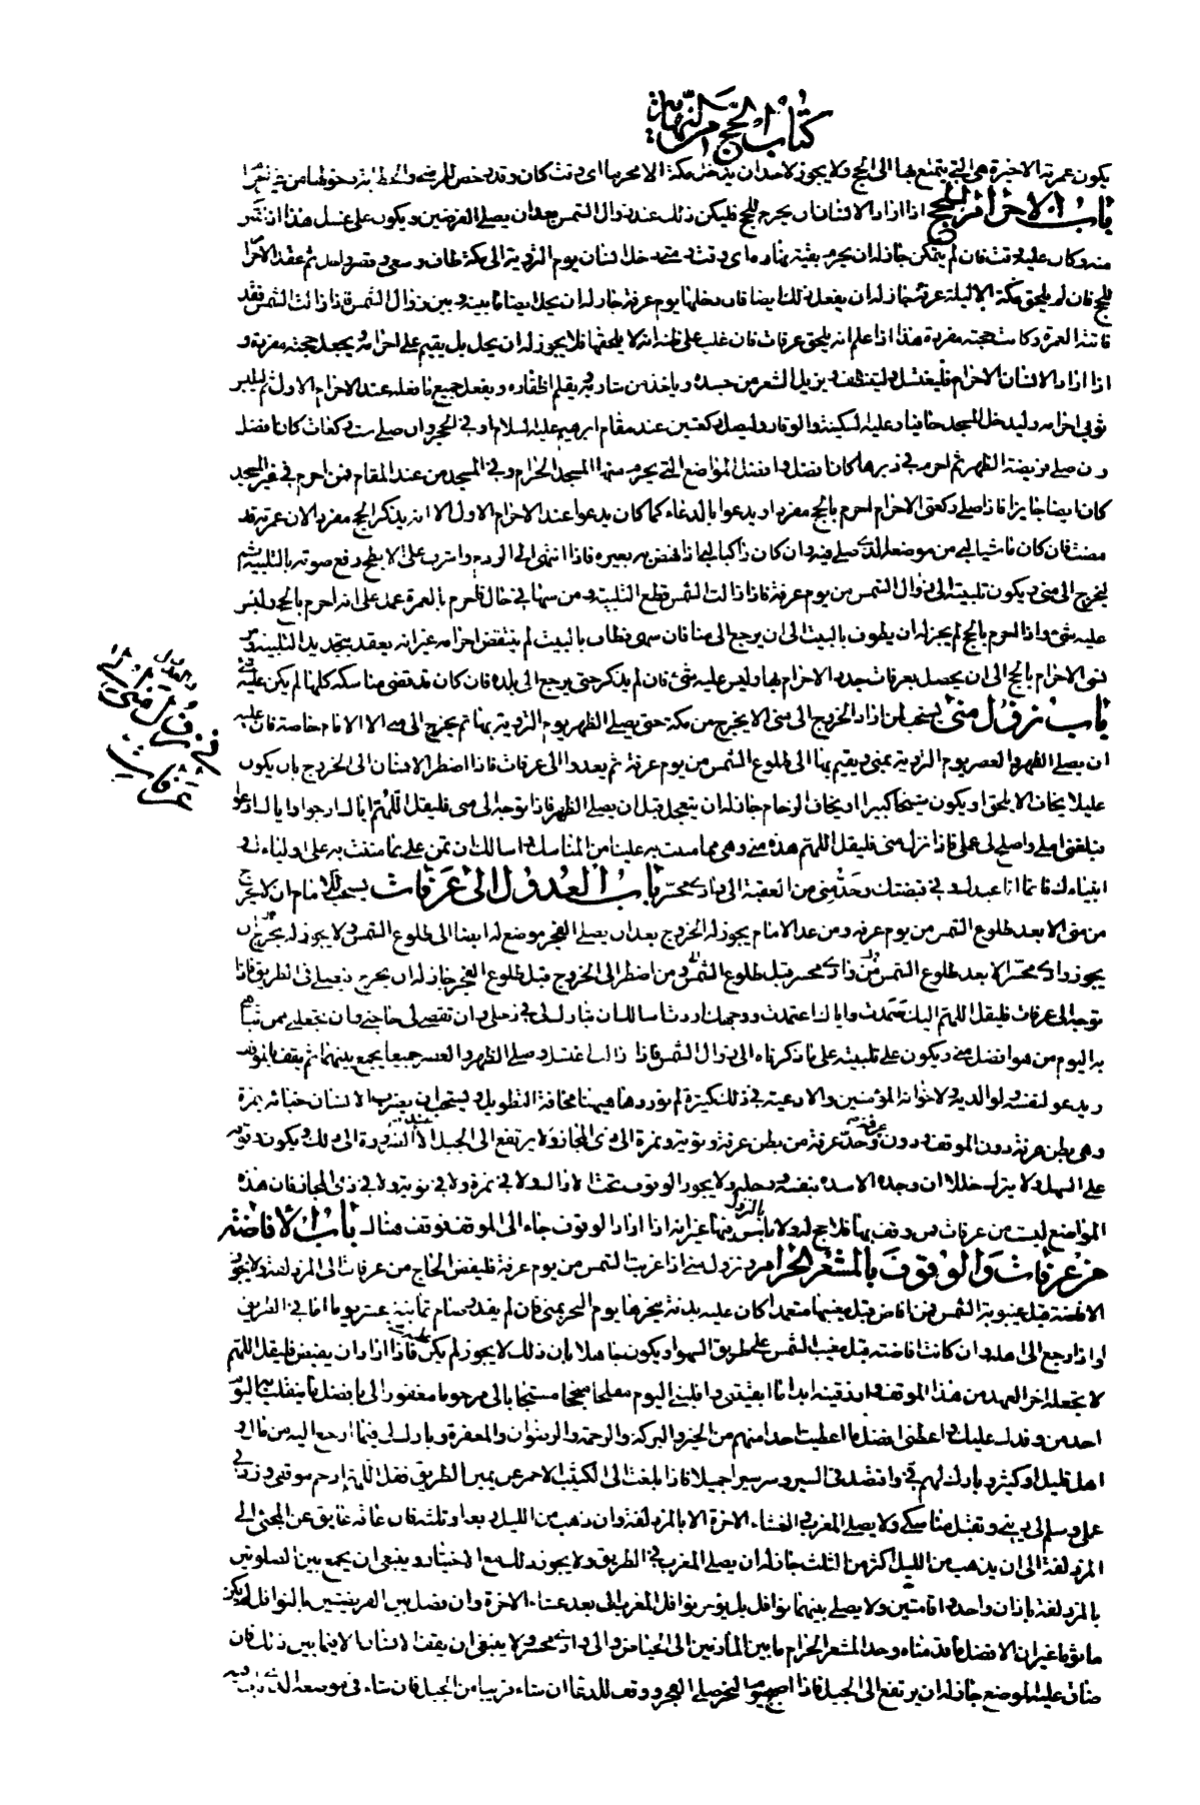 كتاب الحج من النهاية
يكون عمرته الاخيرة هي التي يتمتع بها الى الحج ولا يجوز لاحد ان يدخل مكة الا محرما اي وقت كان وقد رخص للمريض والحطابة دخولها من غير احرام
باب الاحرام للحج اذا اراد الانسان ان يحرم للحج فليكن ذلك عند زوال الشمس بعد ان يصلي الفرضين ويكون على غسل هذا اذا تمكن
منه وكان عليه وقت فان لم يتمكن جاز له ان يحرم بقية نهاره اي وقت شاء دخل الانسان يوم التروية الى مكة طاف وسعى وقصر واحل ثم عقد الاحرام
للحج فان لم يلحق مكة الا ليلة عرفة جاز له ان يفعل ذلك ايضا فان دخلها يوم عرفة جاز له ان يحل ايضا ما بينه وبين زوال الشمس فاذا زالت الشمس فقد
فاتته العمرة وكانت حجته مفردة هذا اذا علم انه يلحق عرفات فان غلب على ظنه انه لا يلحقها فلا يجوز له ان يحل بل يقيم على احرامه ويجعل حجته مفردة و
اذا اراد الانسان الاحرام فليغتسل وليتنظف ويزيل الشعر من جسده وياخذ من شاربه ويقلم اظفاره ويفعل جميع ما فعله عند الاحرام الاول ثم ليلبس
ثوبي احرامه وليدخل المسجد حافيا وعليه السكينة والوقار وليصل ركعتين عند مقام ابرهيم عليه السلام او في الحجر وان صلى ست ركعات كان افضل
وان صلى فريضة الظهر ثم احرم في دبرها كان افضل وافضل المواضع التي يحرم منها المسجد الحرام وفي المسجد من عند المقام فمن احرم في غير المسجد
كان ايضا جايزا فاذا صلى ركعتي الاحرام احرم بالحج مفردا ويدعو بالدعاء كما كان يدعوا عند الاحرام الاول الا انه يذكر الحج مفردا لان عمرته قد
مضت فان كان ماشيا لبى من موضعه الذي صلى فيه وان كان راكبا لبى اذا نهض به بعيره فاذا انتهى الى الردم واشرف على الابطح رفع صوته بالتلبية ثم
ليخرج الى منى ويكون تلبيته الى زوال الشمس من يوم عرفة فاذا زالت الشمس قطع التلبية ومن سها في حال فاحرم بالعمرة عمل على انه احرم بالحج وليس
عليه شئ واذا احرم بالحج لم يجز له ان يطوف بالبيت الى ان يرجع الى منا فان سهى فطاف بالبيت لم ينتقض احرامه غير انه يعقد بتجديد التلبية ومن
نسى الاحرام بالحج الى ان يحصل بعرفات جدد الاحرام بها وليس عليه شئ فان لم يذكر حتى يرجع الى بلده فان كان قد قضى مناسكه كلها لم يكن عليه شئ
باب نزول منى يستحب لمن اراد الخروج الى منى الا يخرج من مكة حتى يصلي الظهر يوم التروية بها ثم يخرج الى منى الا الامام خاصة فان عليه
ان يصلي الظهر والعصر يوم التروية بمنى ويقيم بها الى طلوع الشمس من يوم عرفة ثم يغدو الى عرفات فاذا اضطر الانسان الى الخروج بان يكون
عليلا يخاف الا يلحق او يكون شيخا كبيرا او يخاف الزحام جاز له ان يتعجل قبل ان يصلي الظهر فاذا توجه الى منى فليقل اللهم اياك ارجوا واياك ادعو
فبلغني املي واصلح لي عملي فاذا نزل منى فليقل اللهم هذه منى وهي مما مننت به علينا من المناسك فاسالك ان تمن علي بما مننت به على اوليائك و
انبيائك فانما انا عبدك وفي قبضتك وحد منى من العقبة الى وادي محسر باب الغدو الى عرفات يستحب للامام ان لا يخرج
من منى الا بعد طلوع الشمس من يوم عرفة ومن عدا الامام يجوز له الخروج بعد ان يصلي الفجر موضع له ايضا الى طلوع الشمس ولا يجوز له ان
يجوز وادي محسر الا بعد طلوع الشمس ومن اضطر الى الخروج قبل طلوع الفجر جاز له ان يخرج ويصلي في الطريق فاذا
توجه الى عرفات فليقل اللهم اليك صمدت واياك اعتمدت ووجهك اردت اسالك ان تبارك لي في رحلي وان تقضي لي حاجتي وان تجعلني ممن تباهي
به اليوم من هو افضل مني ويكون على تلبيته على ما ذكرناه الى زوال الشمس فاذا زالت اغتسل وصلى الظهر والعصر جميعا يجمع بينهما ثم يقف بالموقف
ويدعو لنفسه ولوالديه ولاخوانه المؤمنين والادعية في ذلك كثيرة لم نوردها هيهنا مخافة التطويل ويستحب ان يضرب الانسان خباءه بنمرة
وهي بطن عرنة دون الموقف ودون عرفة وحد عرفة من بطن عرنة وثوية ونمرة الى ذي المجاز ولا يرتفع الى الجبل الا عند الضرورة الى ذلك ويكون وقوفه
على السهل ولا يترك خللا ان وجده الا سده بنفسه ورحله ولا يجوز الوقوف تحت الاراك ولا في نمرة ولا في ثوية ولا في ذي المجاز فان هذه
المواضع ليست من عرفات فمن وقف بها فلا حج له ولا باس بالنزول فيها غير انه اذا اراد الوقوف جاء الى الموقف فوقف هناك باب الافاضة
من عرفات والوقوف بالمشعر الحرام ونزول منى اذا غربت الشمس من يوم عرفة فليفض الحاج من عرفات الى المزدلفة ولا يجوز
الافاضة قبل غيبوبة الشمس فمن افاض قبل مغيبها متعمدا كان عليه بدنة ينحرها يوم النحر بمنى فان لم يقدر صام ثمانية عشر يوما اما في الطريق
او اذا رجع الى اهله وان كانت افاضته قبل مغيب الشمس على طريق السهو او يكون جاهلا بان ذلك لا يجوز لم يكن عليه شئ فاذا اراد ان يفيض فليقل اللهم
لا تجعله اخر العهد من هذا الموقف وارزقنيه ابدا ما ابقيتني واقلبني اليوم مفلحا منجحا مستجابا لي مرحوما مغفورا لي بافضل ما ينقلب به اليوم
احد من وفدك عليك واعطني افضل ما اعطيت احدا منهم من الخير والبركة والرحمة والرضوان والمغفرة وبارك لي فيما ارجع اليه من مال او
اهل او قليل او كثير وبارك لهم في واقتصد في السير وسر سيرا جميلا فاذا بلغت الى الكثيب الاحمر عن يمين الطريق فقل اللهم ارحم موقفي وزد في
عملي وسلم لي ديني وتقبل مناسكي ولا يصلي المغرب والعشاء الاخرة الا بالمزدلفة وان ذهب من الليل ربعه او ثلثه فان عاقه عايق عن المجئ الى
المزدلفة الى ان يذهب من الليل اكثر من الثلث جاز له ان يصلي المغرب في الطريق ولا يجوز ذلك مع الاختيار وينبغي ان يجمع بين الصلوتين
بالمزدلفة باذان واحد واقامتين ولا يصلي بينهما نوافل بل يؤخر نوافل المغرب الى بعد عشاء الاخرة وان فصل بين الفريضتين بالنوافل لم يكن
ماثوما غير ان الافضل ما قدمناه وحد المشعر الحرام ما بين المأزمين الى الحياض والى وادي محسر ولا ينبغي ان يقف الانسان الا فيما بين ذلك فان
ضاق عليه الموضع جاز له ان يرتفع الى الجبل فاذا اصبح يوم النحر صلى الفجر ووقف للدعا ان شاء قريبا من الجبل فان شاء في موضعه الذي بات فيه
في نزول منى
عرفات